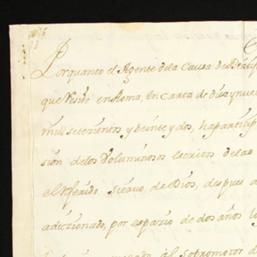 Por quanto el Agente dela Causa de
que reside en Roma, en Carta de diez y nueve
mil setecientos y veinte y dos, ha partisip
sión delos Voluminosos escritos delas
el Referido Siervo de Dios, despues a
adiccionado, por espacio de dos años lo
al Sotopromotor de